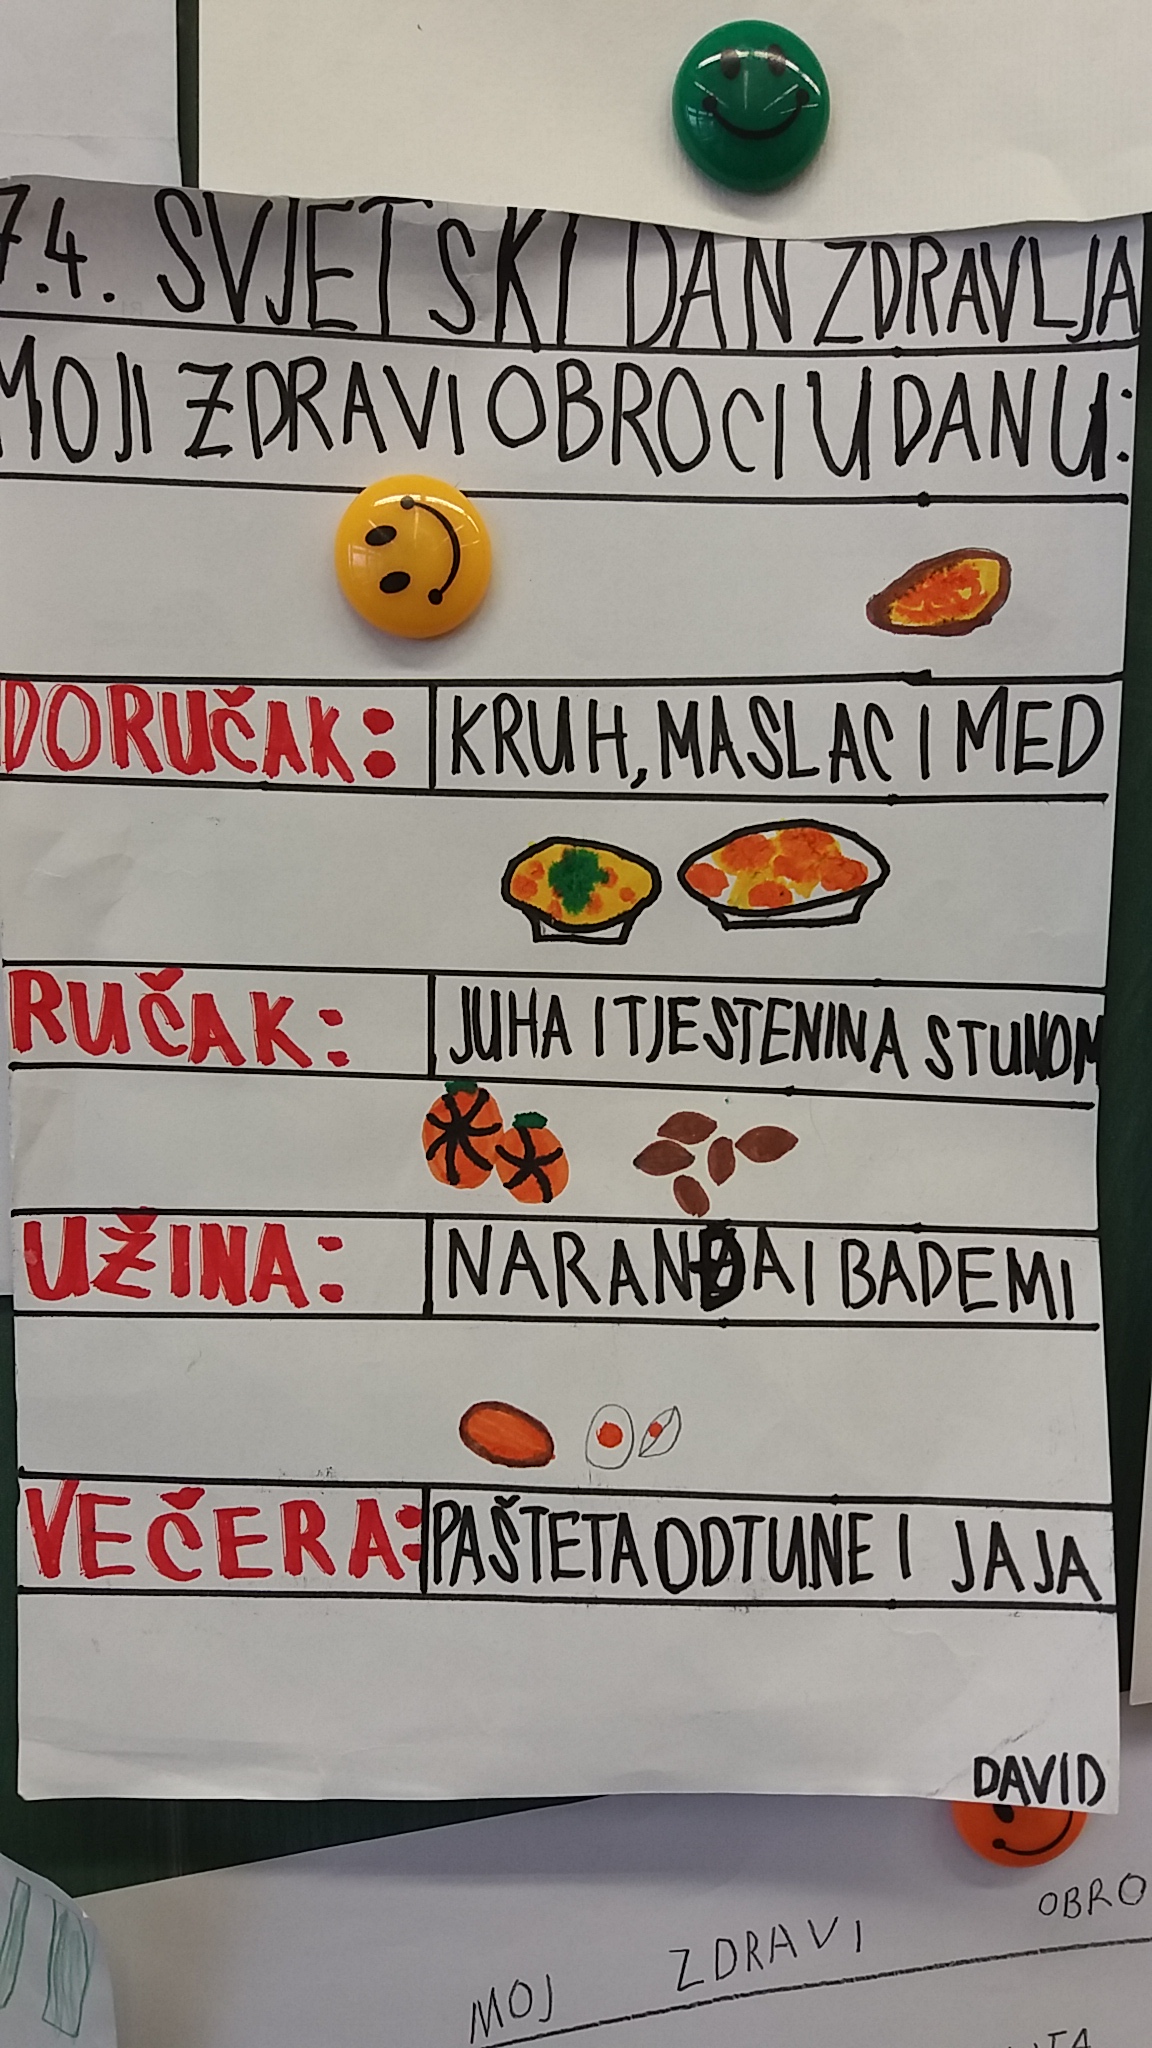 7.4. SVJETSKI DAN ZDRAVLJA
MOJI ZDRAVI OBROCI U DANU:
DORUČAK: KRUH, MASLAC I MED
RUČAK: JUHA I TJESTENINA S TUNOM
UŽINA: NARANĐA I BADEMI
VEČERA: PAŠTETA OD TUNE I JAJA
DAVID
MOJ ZDRAVI OBRO